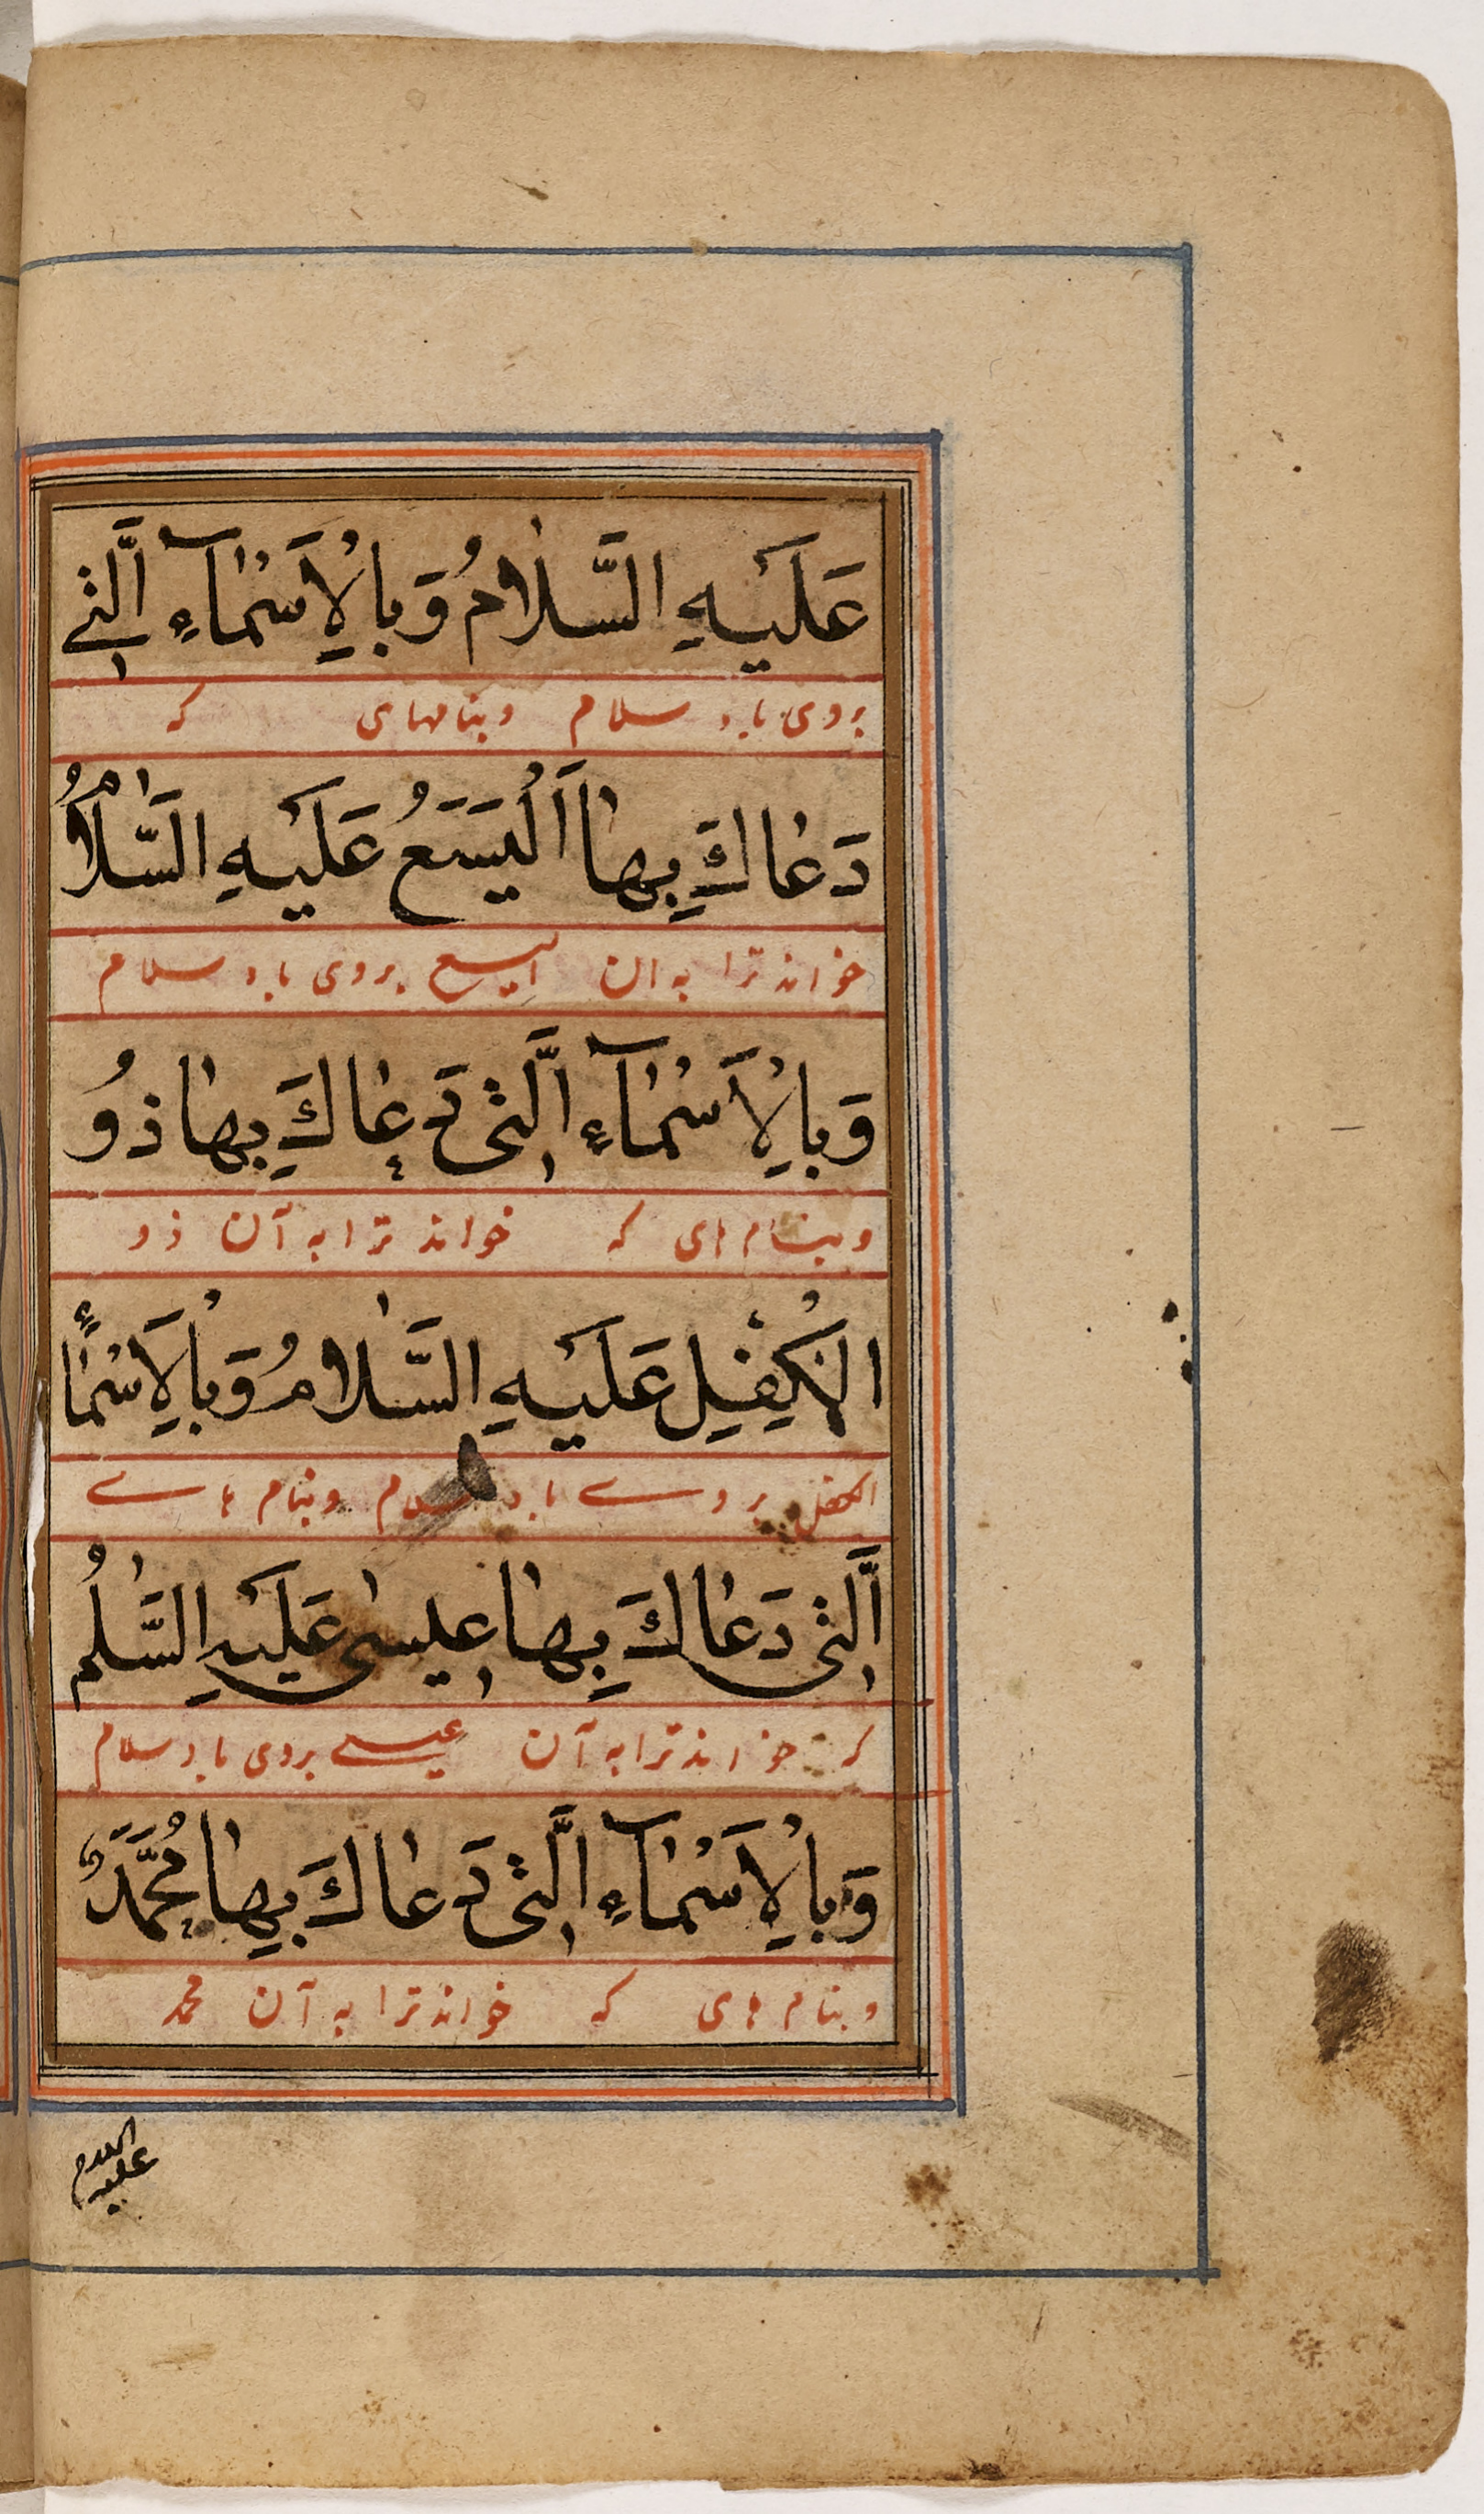 عَلَیْهِ السَّلامُ وَبِالْاَسْمآءِ الَّتٖی
بروی باد سلام وبنامهای که
دَعاكَ بِها اَلْیَسَعُ عَلَیْهِ السَّلامُ
خواند ترا به ان الیسع بروی باد سلام
وَبِالْاَسْمآءِ الَّتٖی دَعاكَ بِها ذُو
وبنام های که خواند ترا به آن ذو
الْكِفْلِ عَلَیْهِ السَّلامُ وَبِالْاَسْماءِ
الکفل بروے باد سلام وبنام هاے
الَّتٖی دَعاكَ بِها عٖیسٰی عَلَیْهِ السَّلٰمُ
که خواند ترا به آن عیسے بروی باد سلام
وَبِالْاَسْمآءِ الَّتٖی دَعاكَ بِها مُحَمَّدٌ
وبنام های که خواند ترا به آن محمد
علیه السلام